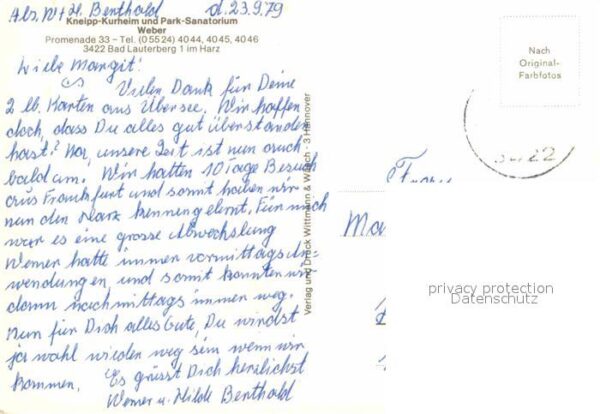 Abs. W + H. Benthold d. 23.9.79
Kneipp-Kurheim und Park-Sanatorium
Weber
Promenade 33 – Tel. (0 55 24) 40 44, 40 45, 40 46
3422 Bad Lauterberg 1 im Harz
Liebe Margit!
Vielen Dank für Deine
2 lb. Karten aus Übersee. Wir hoffen
doch, dass Du alles gut überstanden
hast? Na, unsere Zeit ist nun auch
bald um. Wir hatten 10 Tage Besuch
aus Frankfurt und somit haben wir
nun den Harz kennengelernt. Für mich
war es eine grosse Abwechslung
Werner hatte immer vormittags An-
wendungen, und somit konnten wir
dann nachmittags immer weg.
Nun für Dich alles Gute, Du wirdst
ja wohl wieder weg sein wenn wir
kommen. Es grüsst Dich herzlichst
Werner u. Hilde Benthold
Verlag und Druck Wittmann & Wäsch, 3 Hannover
Nach
Original-
Farbfotos
22
Ma
privacy protection
Datenschutz